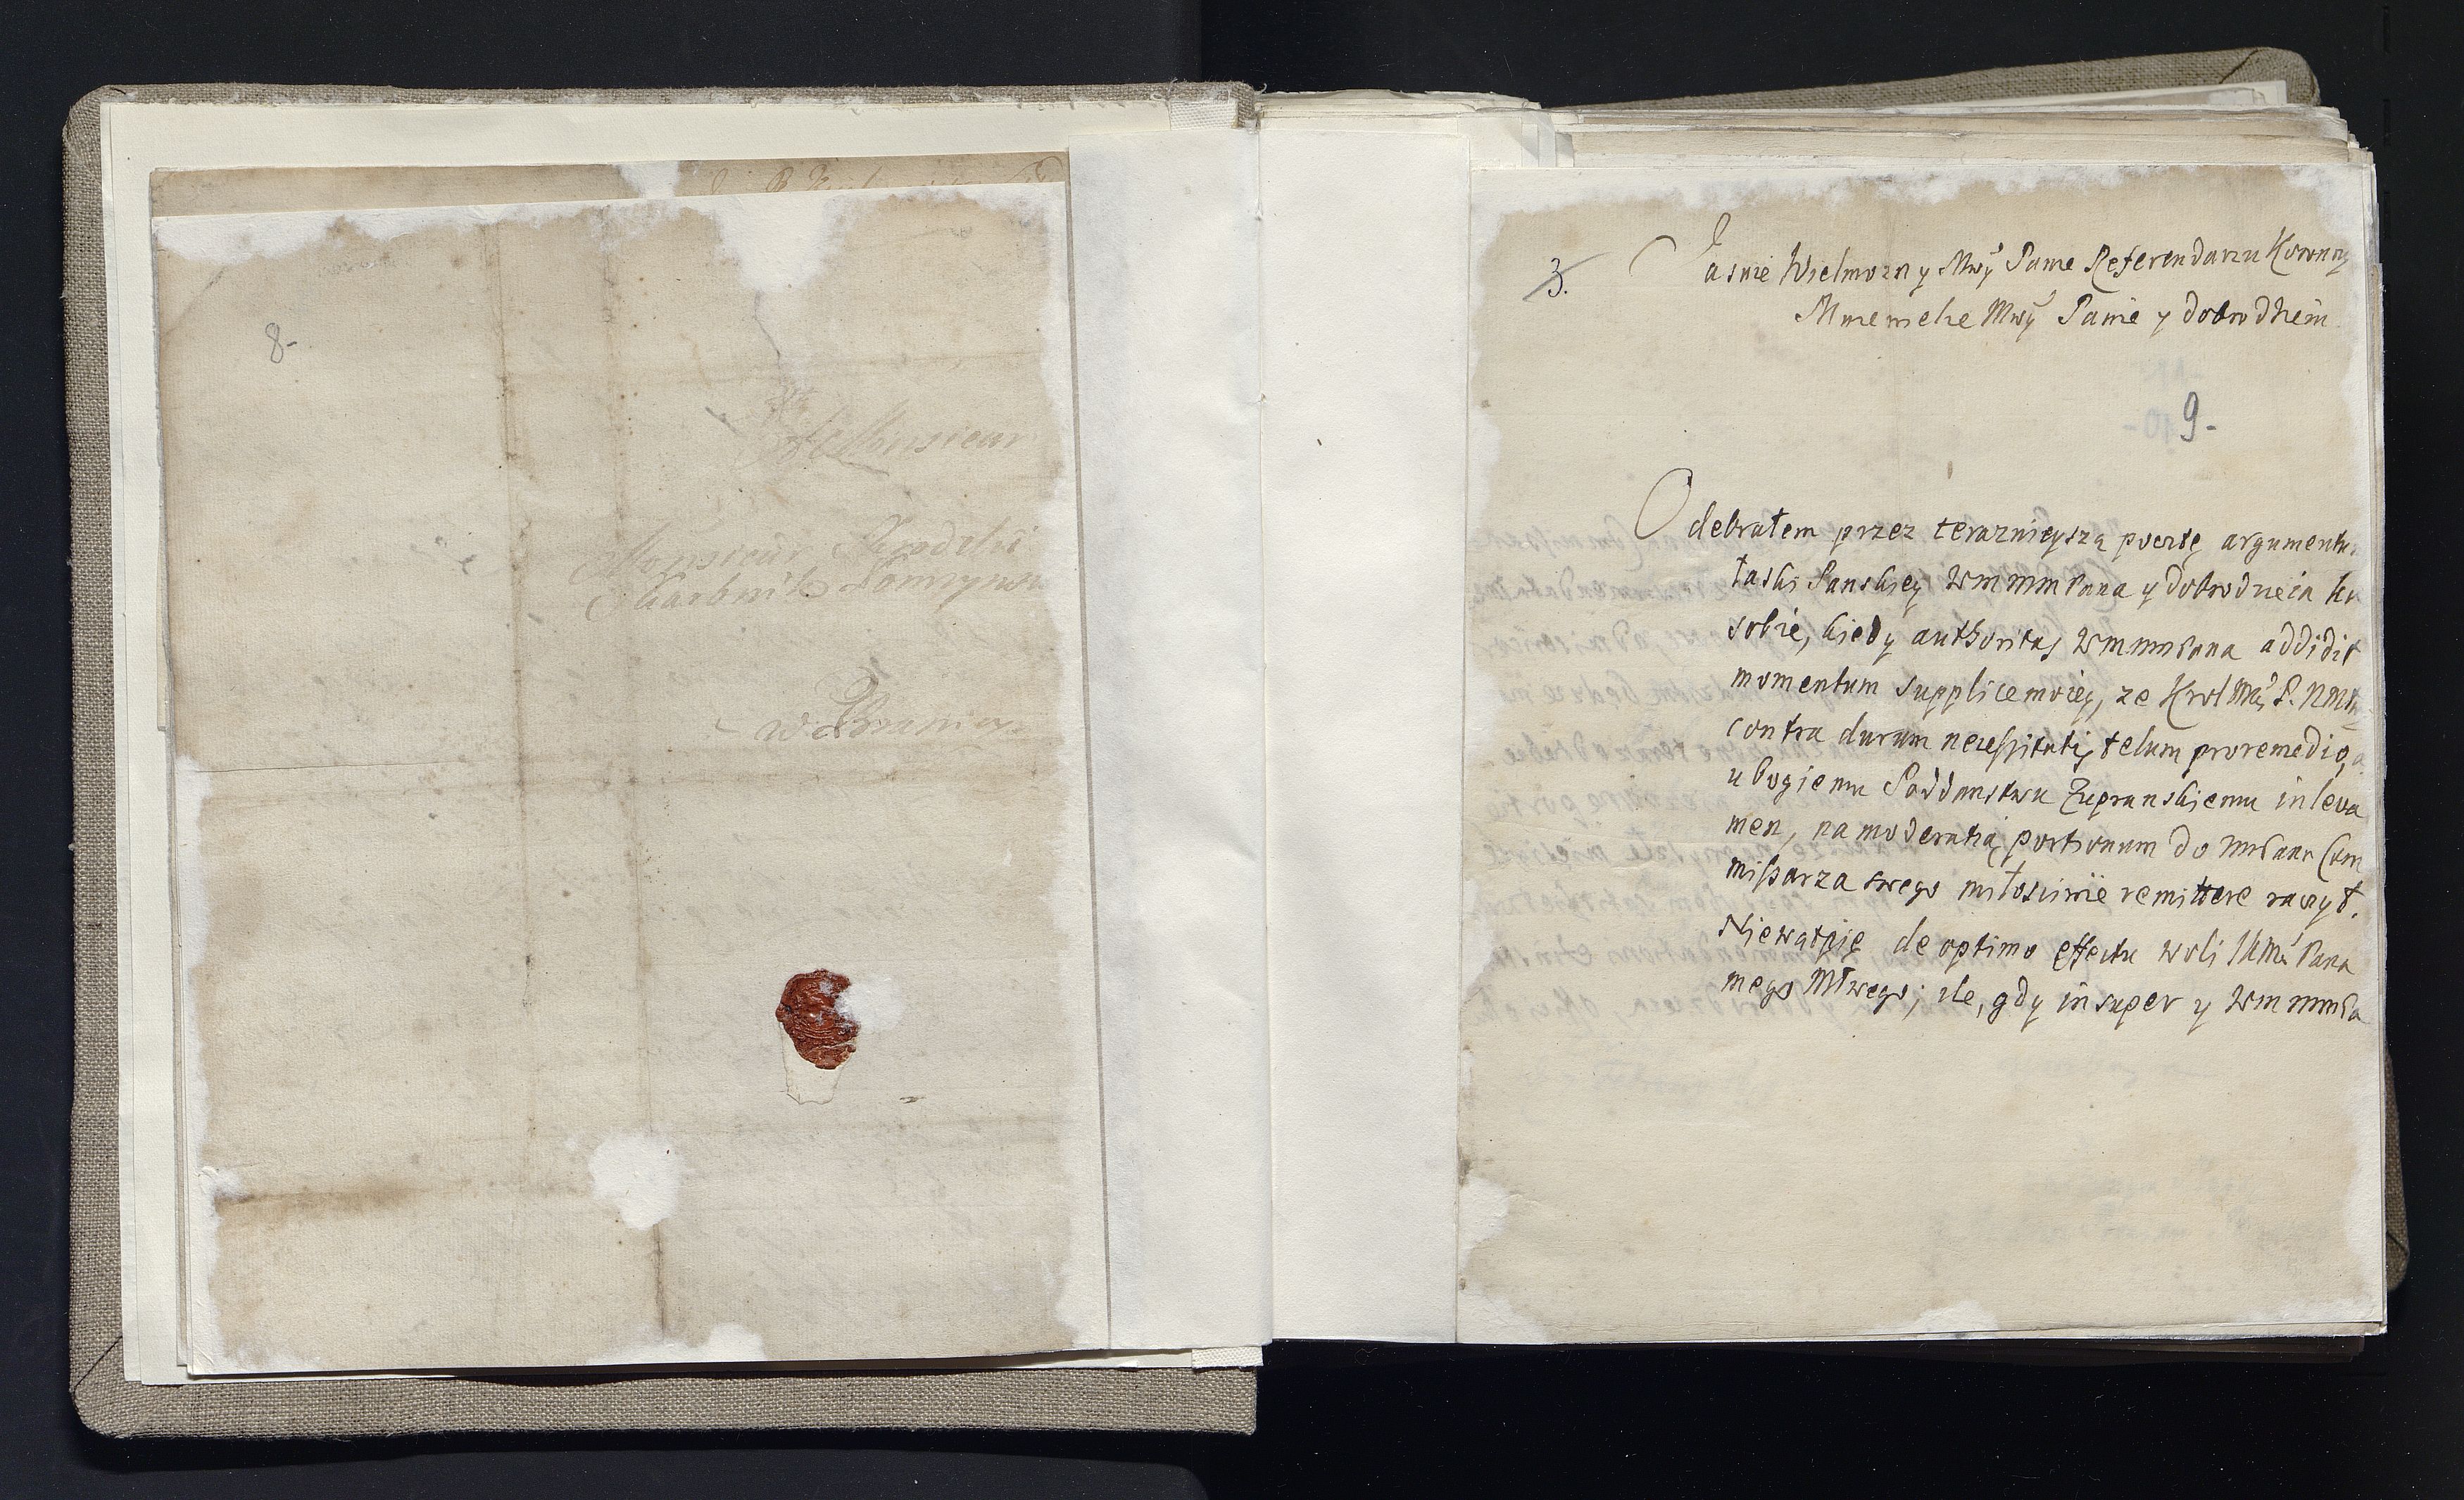 8-
A Monsieur
Monsieur
Skarbnik
w
3.
Jasnie Wielmozny Mwy Panie Referendarzu Koronny
Mnemche Mwy Panie y dobrodhein
9-
Odebrałem przez teraznieyszą pocztę argumentu
łaski Panskiey Wmmm Pana y dobrodzieia ku
sobie, kiedy authoritas Wmmm Pana addidit
momentum supplice moiey, ze Krol Mś P. NM
contra durum necessitatis telum pro remedio, a
ubogiemu Poddanstwu Zupranskiemu in leva
men, na moderatią portionum do Pana Com
missarza swego miłosciwie remittere raczył.
Niewątpię de optimo effectu woli JKMci Pana
mego Młwego; ile, gdy insuper y Wmmm Pa